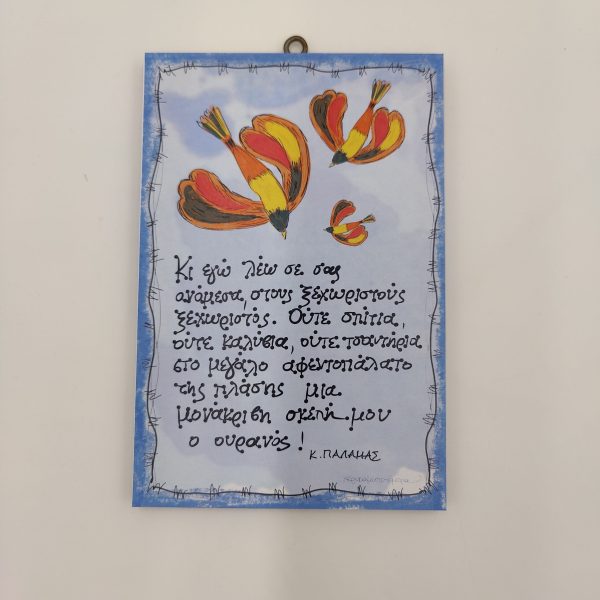 Κι εγώ λέω σε σας
ανάμεσα, στους ξεχωριστούς
ξεχωριστός. Ούτε σπίτια,
ούτε καλύβια, ούτε τσαντήρια
στο μεγάλο αφεντοπάλατο
της πλάσης μια
μονάκριβη σκέπη μου
ο ουρανός!
Κ. ΠΑΛΑΜΑΣ